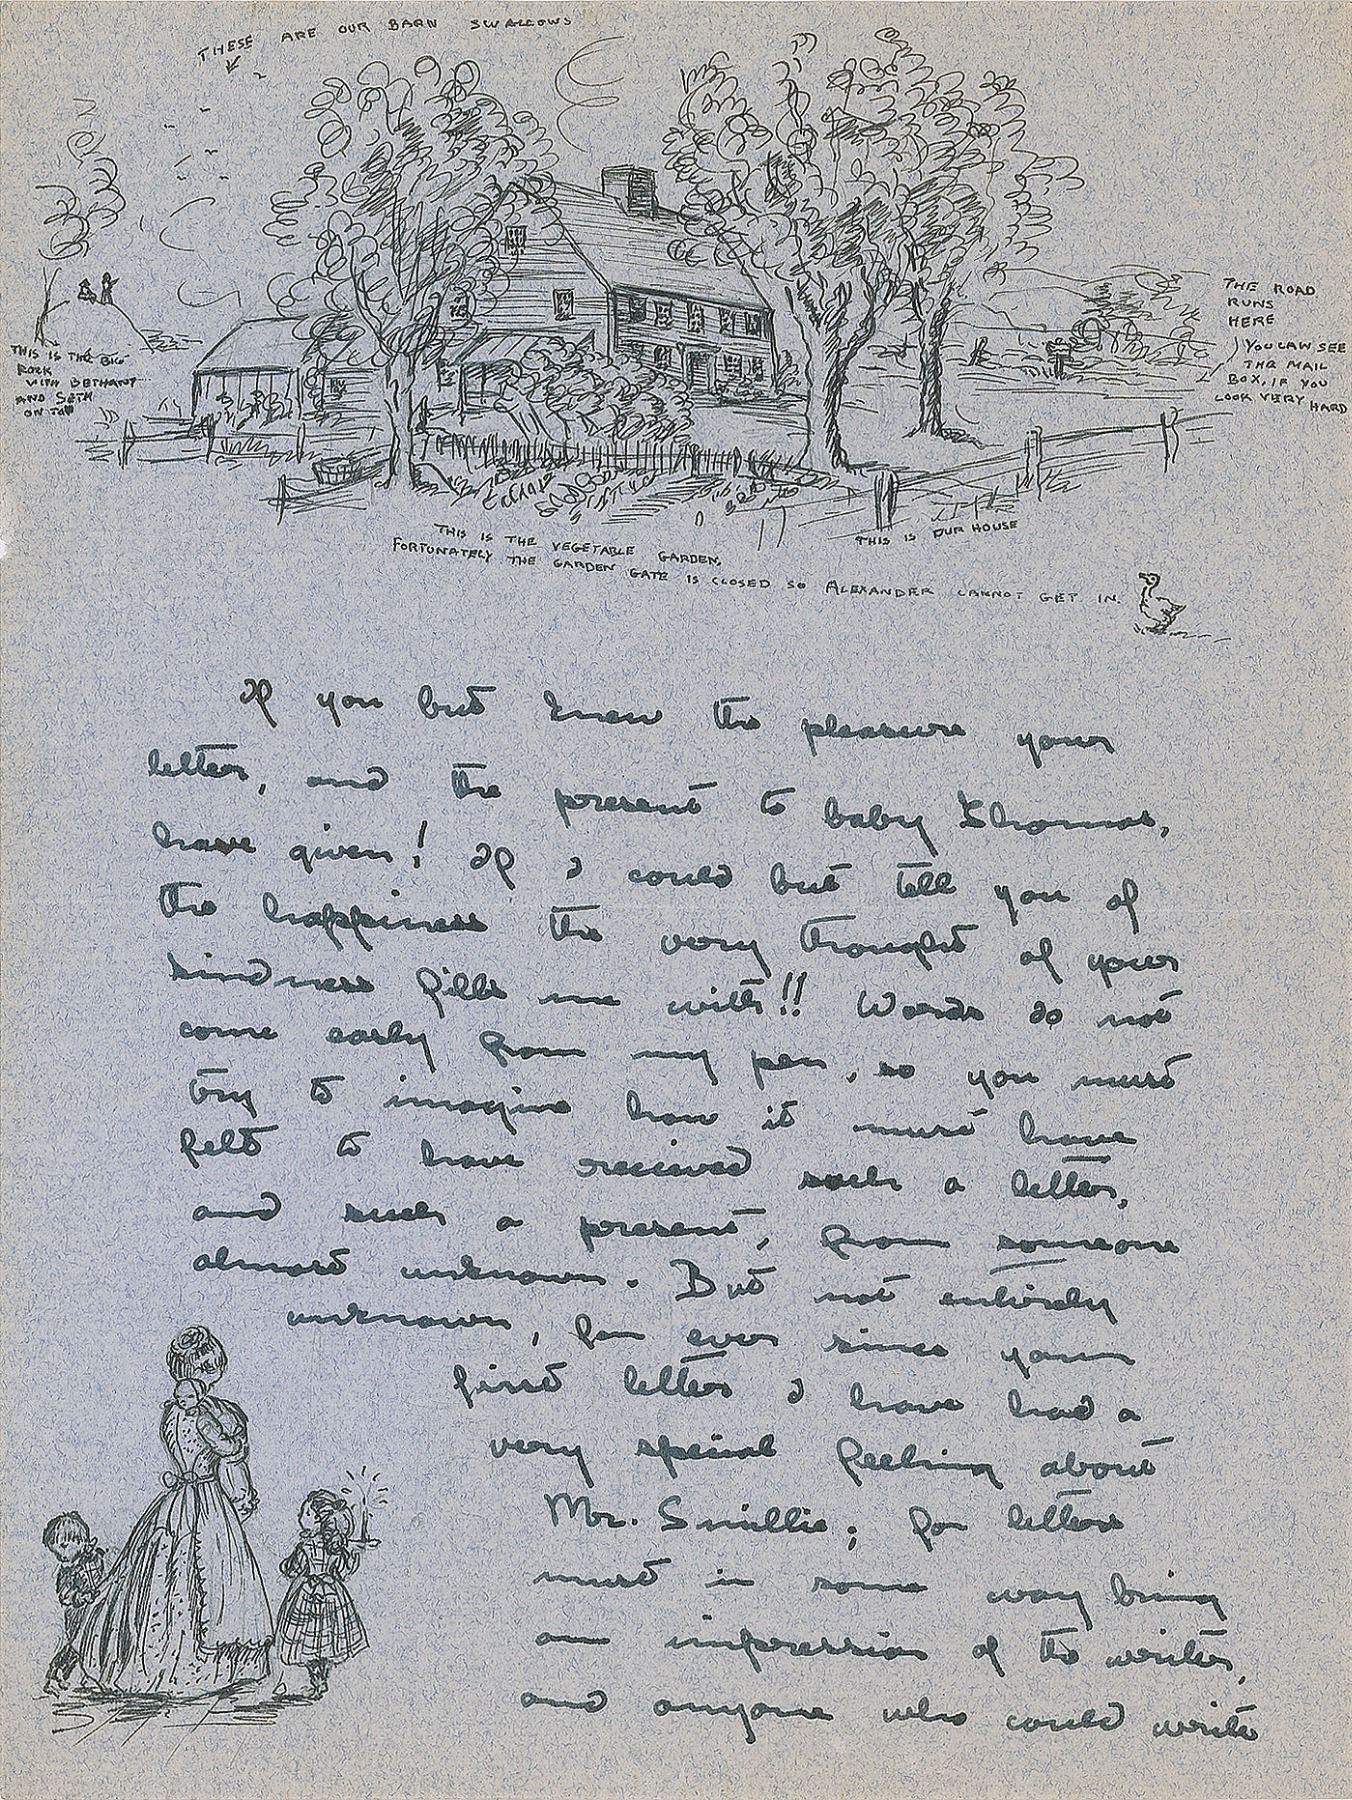 THESE ARE OUR BARN SWALLOWS
THIS IS THE BIG
ROCK
WITH BETHANY
AND SETH
ON TOP
THE ROAD
RUNS
HERE
YOU CAN SEE
THE MAIL
BOX, IF YOU
LOOK VERY HARD
THIS IS OUR HOUSE
THIS IS THE VEGETABLE GARDEN.
FORTUNATELY THE GARDEN GATE IS CLOSED SO ALEXANDER CANNOT GET IN.
If you but knew the pleasure your
letter, and the present to baby Thomas,
have given! If I could but tell you of
the happiness the very thought of your
kindness fills me with!! Words do not
come easily from my pen, so you must
try to imagine how it must have
felt to have received such a letter,
and such a present, from someone
almost unknown. But not entirely
unknown, for ever since your
first letter I have had a
very special feeling about
Mr. Smillie; for letters
must in some way bring
an impression of the writer,
and anyone who could write